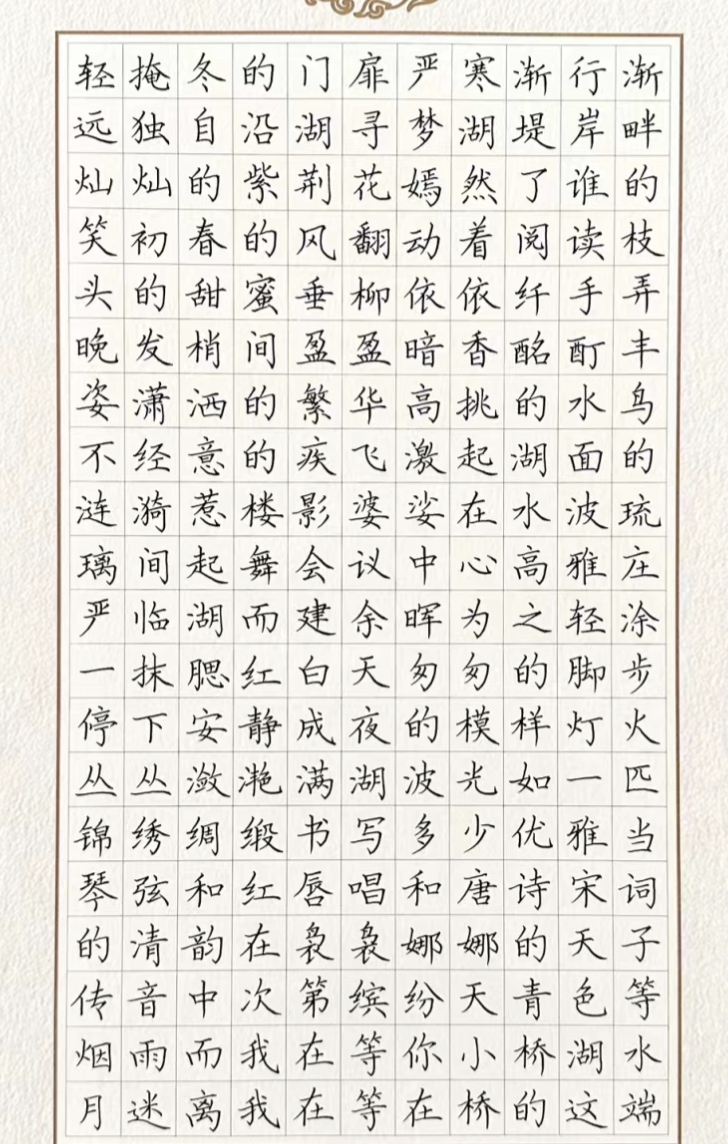 轻掩冬的门扉严寒渐行渐
远独自沿湖寻梦湖堤岸畔
灿灿的紫荆花嫣然了谁的
笑初春的风翻动着阅读枝
头的甜蜜垂柳依依纤手弄
晚发梢间盈盈暗香酩酊丰
姿潇洒的繁华高挑的水鸟
不经意的疾飞激起湖面的
涟漪惹楼影婆娑在水波琉
璃间起舞会议中心高雅庄
严临湖而建余晖为之轻涂
一抹腮红白天匆匆的脚步
停下安静成夜的模样灯火
丛丛潋滟满湖波光如一匹
锦绣绸缎书写多少优雅当
琴弦和红唇唱和唐诗宋词
的清韵在袅袅娜娜的天子
传音中次第缤纷天青色等
烟雨而我在等你小桥湖水
月迷离我在等在桥的这端